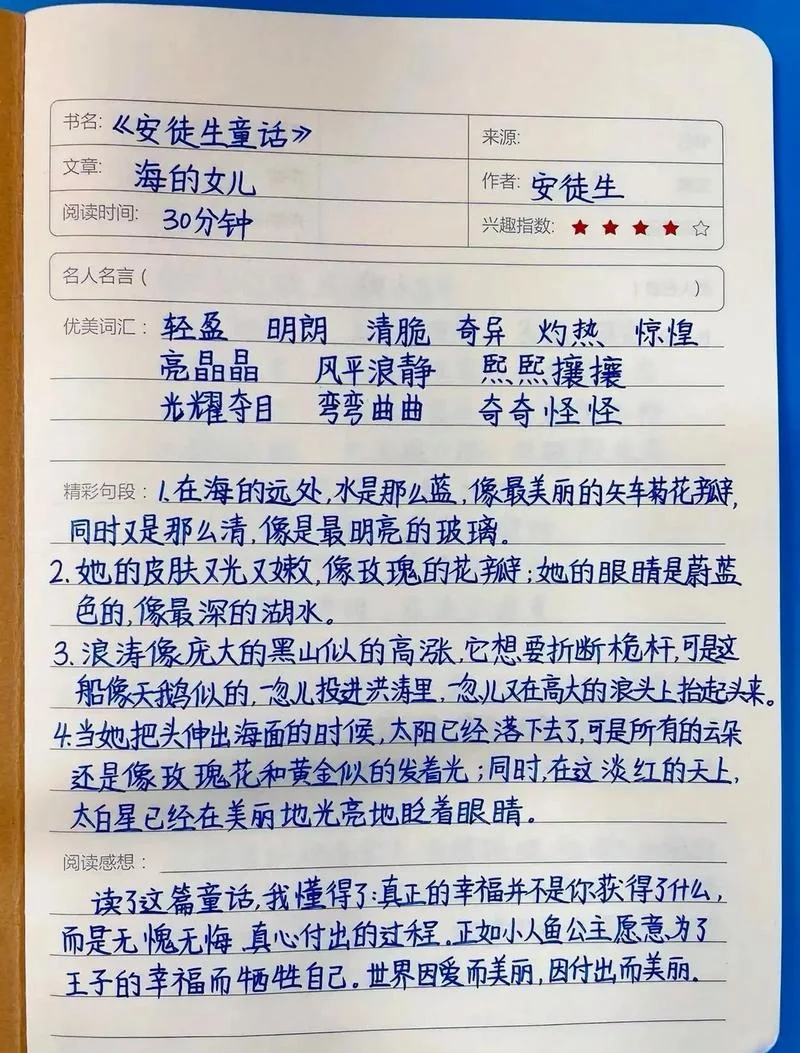 书名:《安徒生童话》 来源:
文章: 海的女儿 作者: 安徒生
阅读时间: 30分钟 兴趣指数: ★★★★☆
名人名言( )
优美词汇: 轻盈 明朗 清脆 奇异 灼热 惊惶
亮晶晶 风平浪静 熙熙攘攘
光耀夺目 弯弯曲曲 奇奇怪怪
精彩句段: 1.在海的远处,水是那么蓝,像最美丽的矢车菊花瓣,
同时又是那么清,像是最明亮的玻璃。
2.她的皮肤又光又嫩,像玫瑰的花瓣;她的眼睛是蔚蓝
色的,像最深的湖水。
3.浪涛像庞大的黑山似的高涨,它想要折断桅杆,可是这
船像天鹅似的,一忽儿投进洪涛里,一忽儿又在高大的浪头上抬起头来。
4.当她把头伸出海面的时候,太阳已经落下去了,可是所有的云朵
还是像玫瑰花和黄金似的发着光;同时,在这淡红的天上,
太白星已经在美丽地光亮地眨着眼睛。
阅读感想:
读了这篇童话,我懂得了:真正的幸福并不是你获得了什么,
而是无愧无悔、真心付出的过程。正如小人鱼公主愿意为了
王子的幸福而牺牲自己。世界因爱而美丽,因付出而美丽。